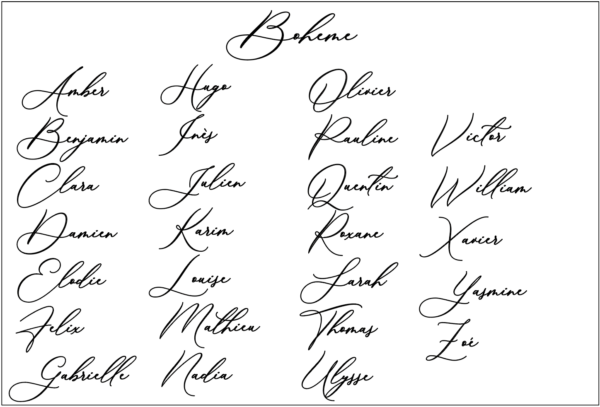 Boheme
Amber
Benjamin
Clara
Damien
Elodie
Felix
Gabrielle
Hugo
Inès
Julien
Karim
Louise
Mathieu
Nadia
Olivier
Pauline
Quentin
Roxane
Sarah
Thomas
Ulysse
Victor
William
Xavier
Yasmine
Zoé